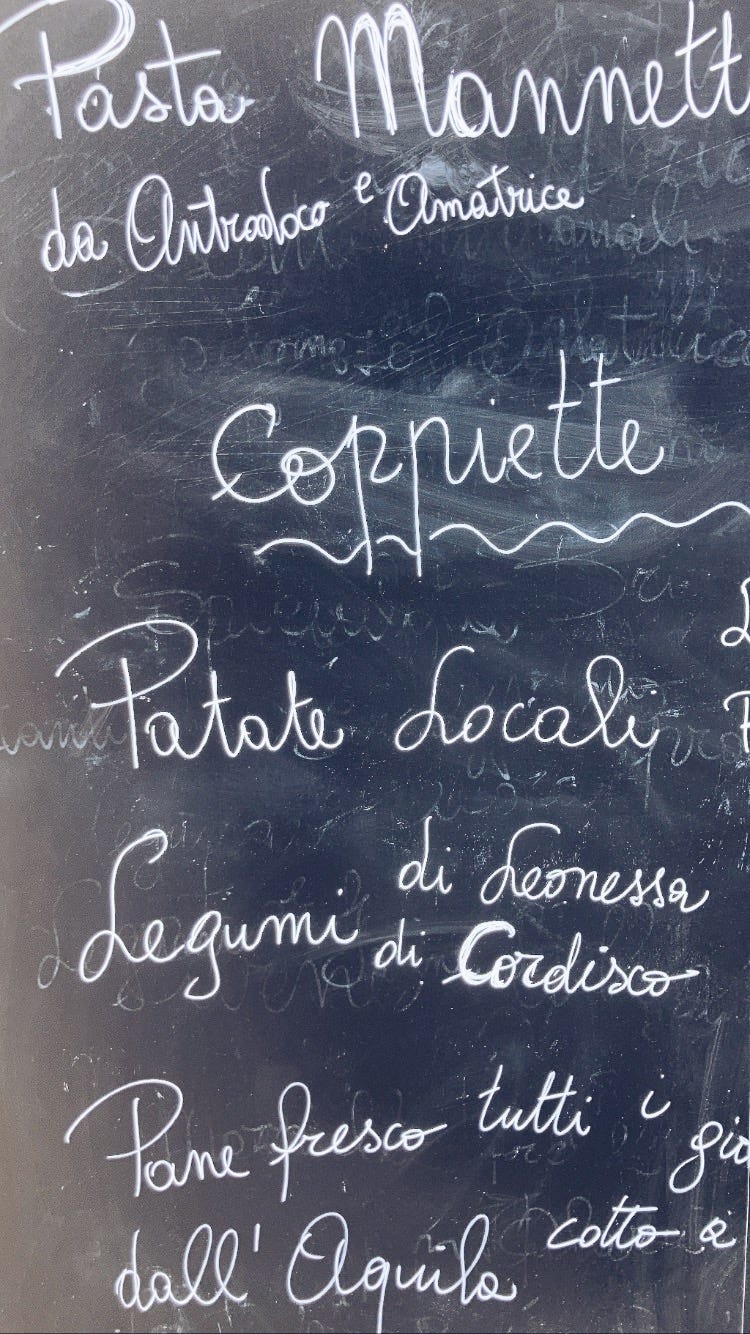 Pasta Mannett
da Antrodoco e Amatrice
Coppiette
Patate Locali
Legumi di Leonessa
di Cordisco
Pane fresco tutti i gio
dall' Aquila cotto a